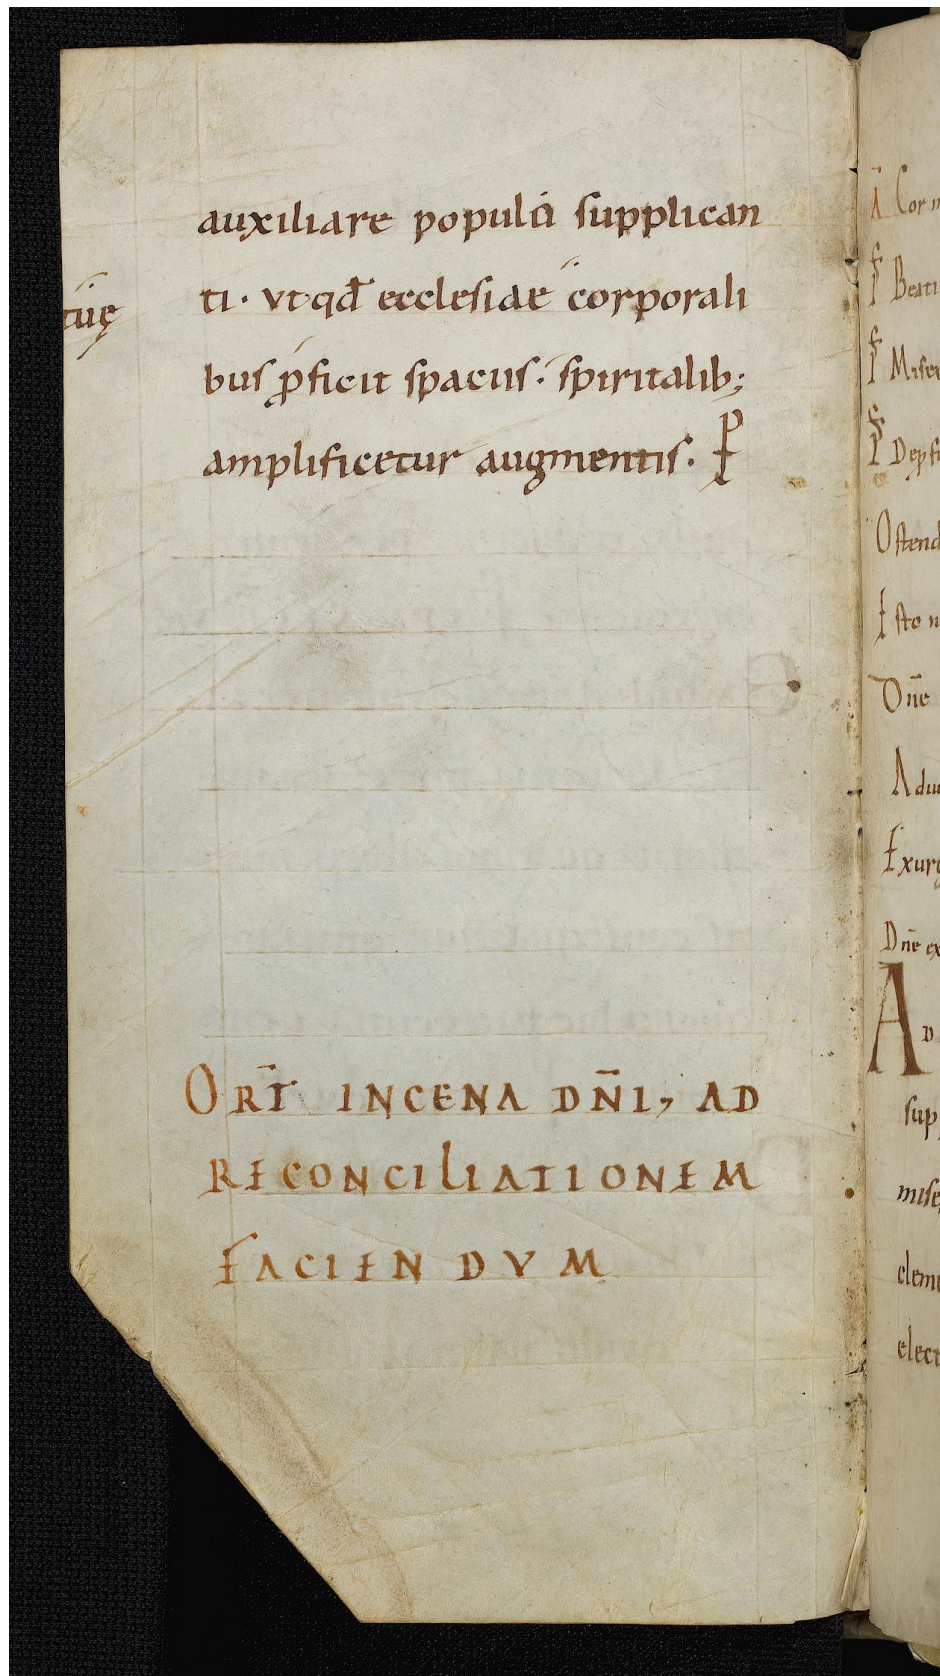 auxiliare populo supplican
ti· vt qđ ecclesiae corporali
tuę
bus ꝓficit spacus· spiritalib;
amplificetur augmentis· P
ORT̄ INCENA DN̄I, AD
RECONCILIATIONEM
FACIENDVM
Beati
Ostend
Isto n
Dn̄e
Exurg
Dn̄e ex
AD
sup
mise
elem
elect